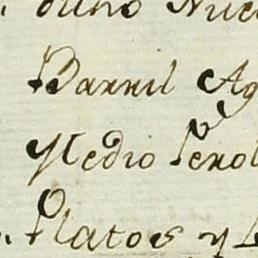 Barril Ag
Medio Perol
Platos y